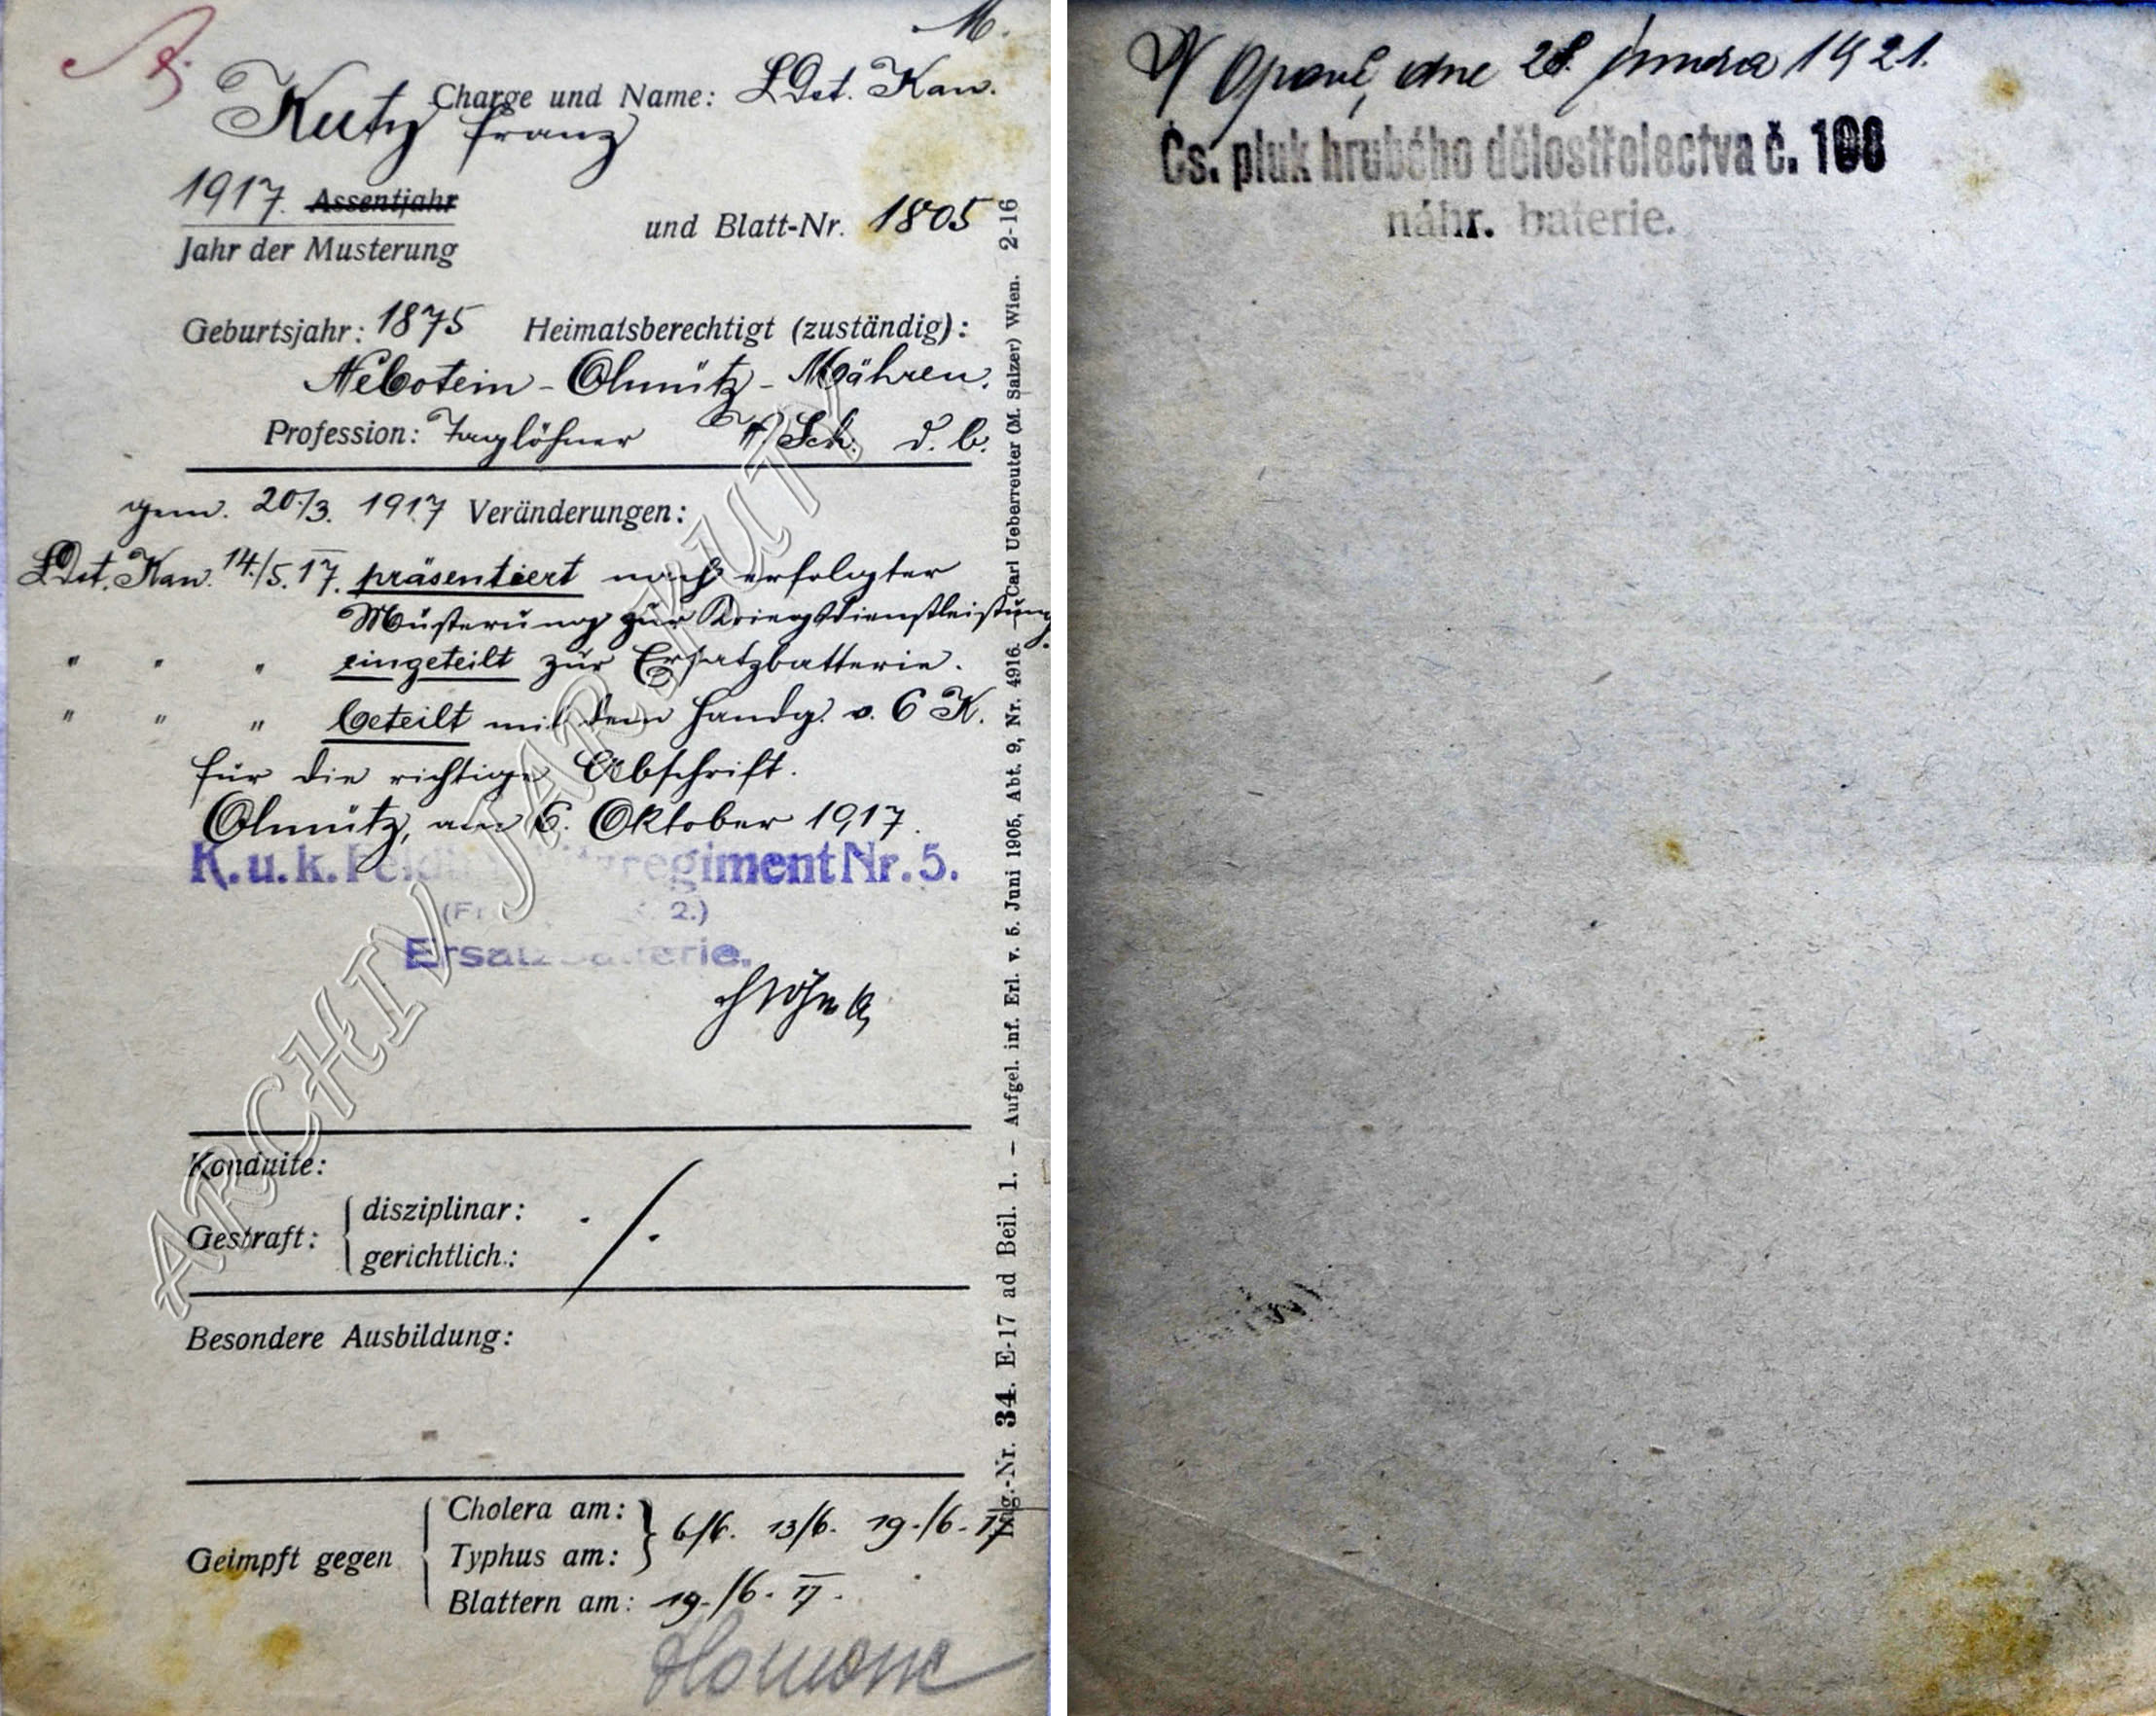 M.
Charge und Name: LDst. Kan.
Kuty Franz
1917. Assentjahr
Jahr der Musterung
und Blatt-Nr. 1805
Geburtsjahr: 1875 Heimatsberechtigt (zuständig):
Nebotein - Olmütz - Mähren.
Profession: Taglöhner Sch. d. b.
gem. 20./3. 1917 Veränderungen:
LDst. Kan. 14./5. 17. präsentiert nach erfolgter
Musterung zur Kriegsdienstleistung.
" " " eingeteilt zur Ersatzbatterie.
" " " beteilt mit dem Handg. v. 6 K.
für die richtige Abschrift.
Olmütz, am 6. Oktober 1917.
K. u. k. Feld regiment Nr. 5.
2.)
Ersatzbatterie.
Konduite:
Gestraft: disziplinar:
gerichtlich:
Besondere Ausbildung:
Geimpft gegen
Cholera am:
Typhus am: 6/6. 13/6. 19./6. 17
Blattern am: 19./6. 17.
Lag.-Nr. 34. E-17 ad Beil. 1. — Aufgel. inf. Erl. v. 5. Juni 1905, Abt. 9, Nr. 4916. — Carl Ueberreuter (M. Salzer) Wien. 2-16
ARCHIV JAR. KUTÝ
V Opavě, dne 28. února 1921.
Čs. pluk hrubého dělostřelectva č. 108
náhr. baterie.